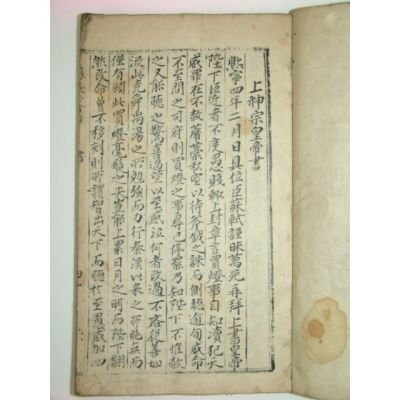 上神宗皇帝書
熙寧四年二月日具位臣蘇軾謹昧萬死再拜上書皇帝
陛下臣近者不度愚賤輒上封章言買燈事自知瀆犯天
威罪在不赦藁私室以待斧鉞之誅而側聽逾旬威命
不至問之司府則買燈之事尋已停罷乃知陛下不惟赦
之又能聽之驚喜過望以至感泣何者改過不吝從善如
流此堯舜禹湯之所勉強而力行秦漢以來之所絶無而
僅有顧此買燈毫髮之失豈能上累日月之明而陛下翻
然改命曾不移刻則所謂智出天下而聽於至愚威加四